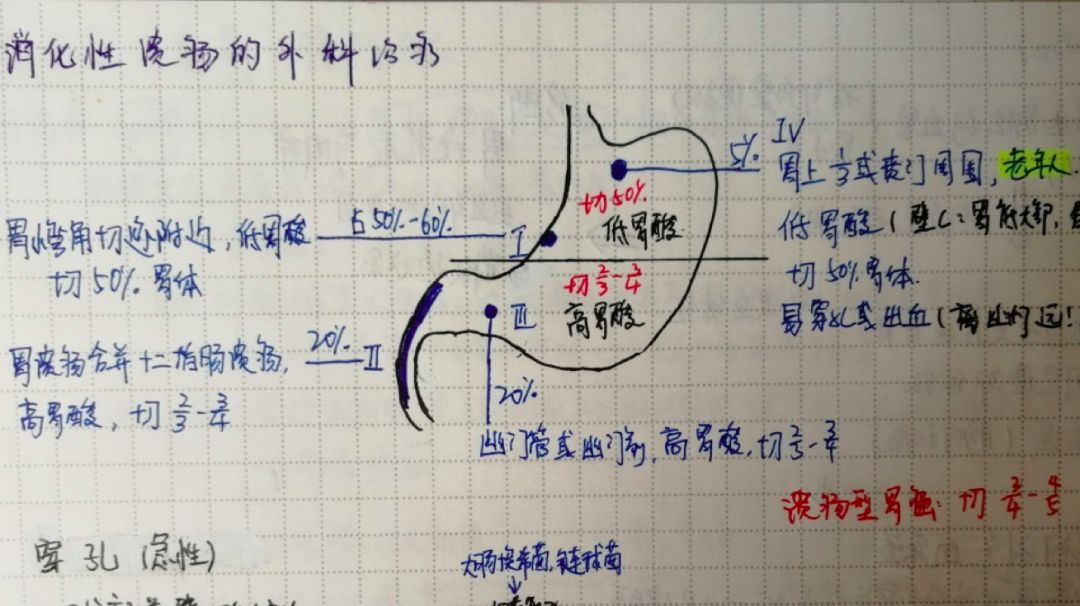 消化性溃疡的外科治疗
5% IV
胃上1/3或贲门周围，老年人
切50%
低胃酸
胃小弯角切迹附近，低胃酸 占50%-60% I
低胃酸（壁C：胃底大部，
切50%胃体
切50%胃体.
切2/3-3/4
高胃酸
III
易穿孔或出血（离幽门远！
胃溃疡合并十二指肠溃疡， 20% II
高胃酸，切2/3-3/4
20%
幽门管或幽门前，高胃酸，切2/3-3/4
溃疡型胃癌：切3/4-4/5
穿孔（急性）
大肠埃希菌，链球菌
↓